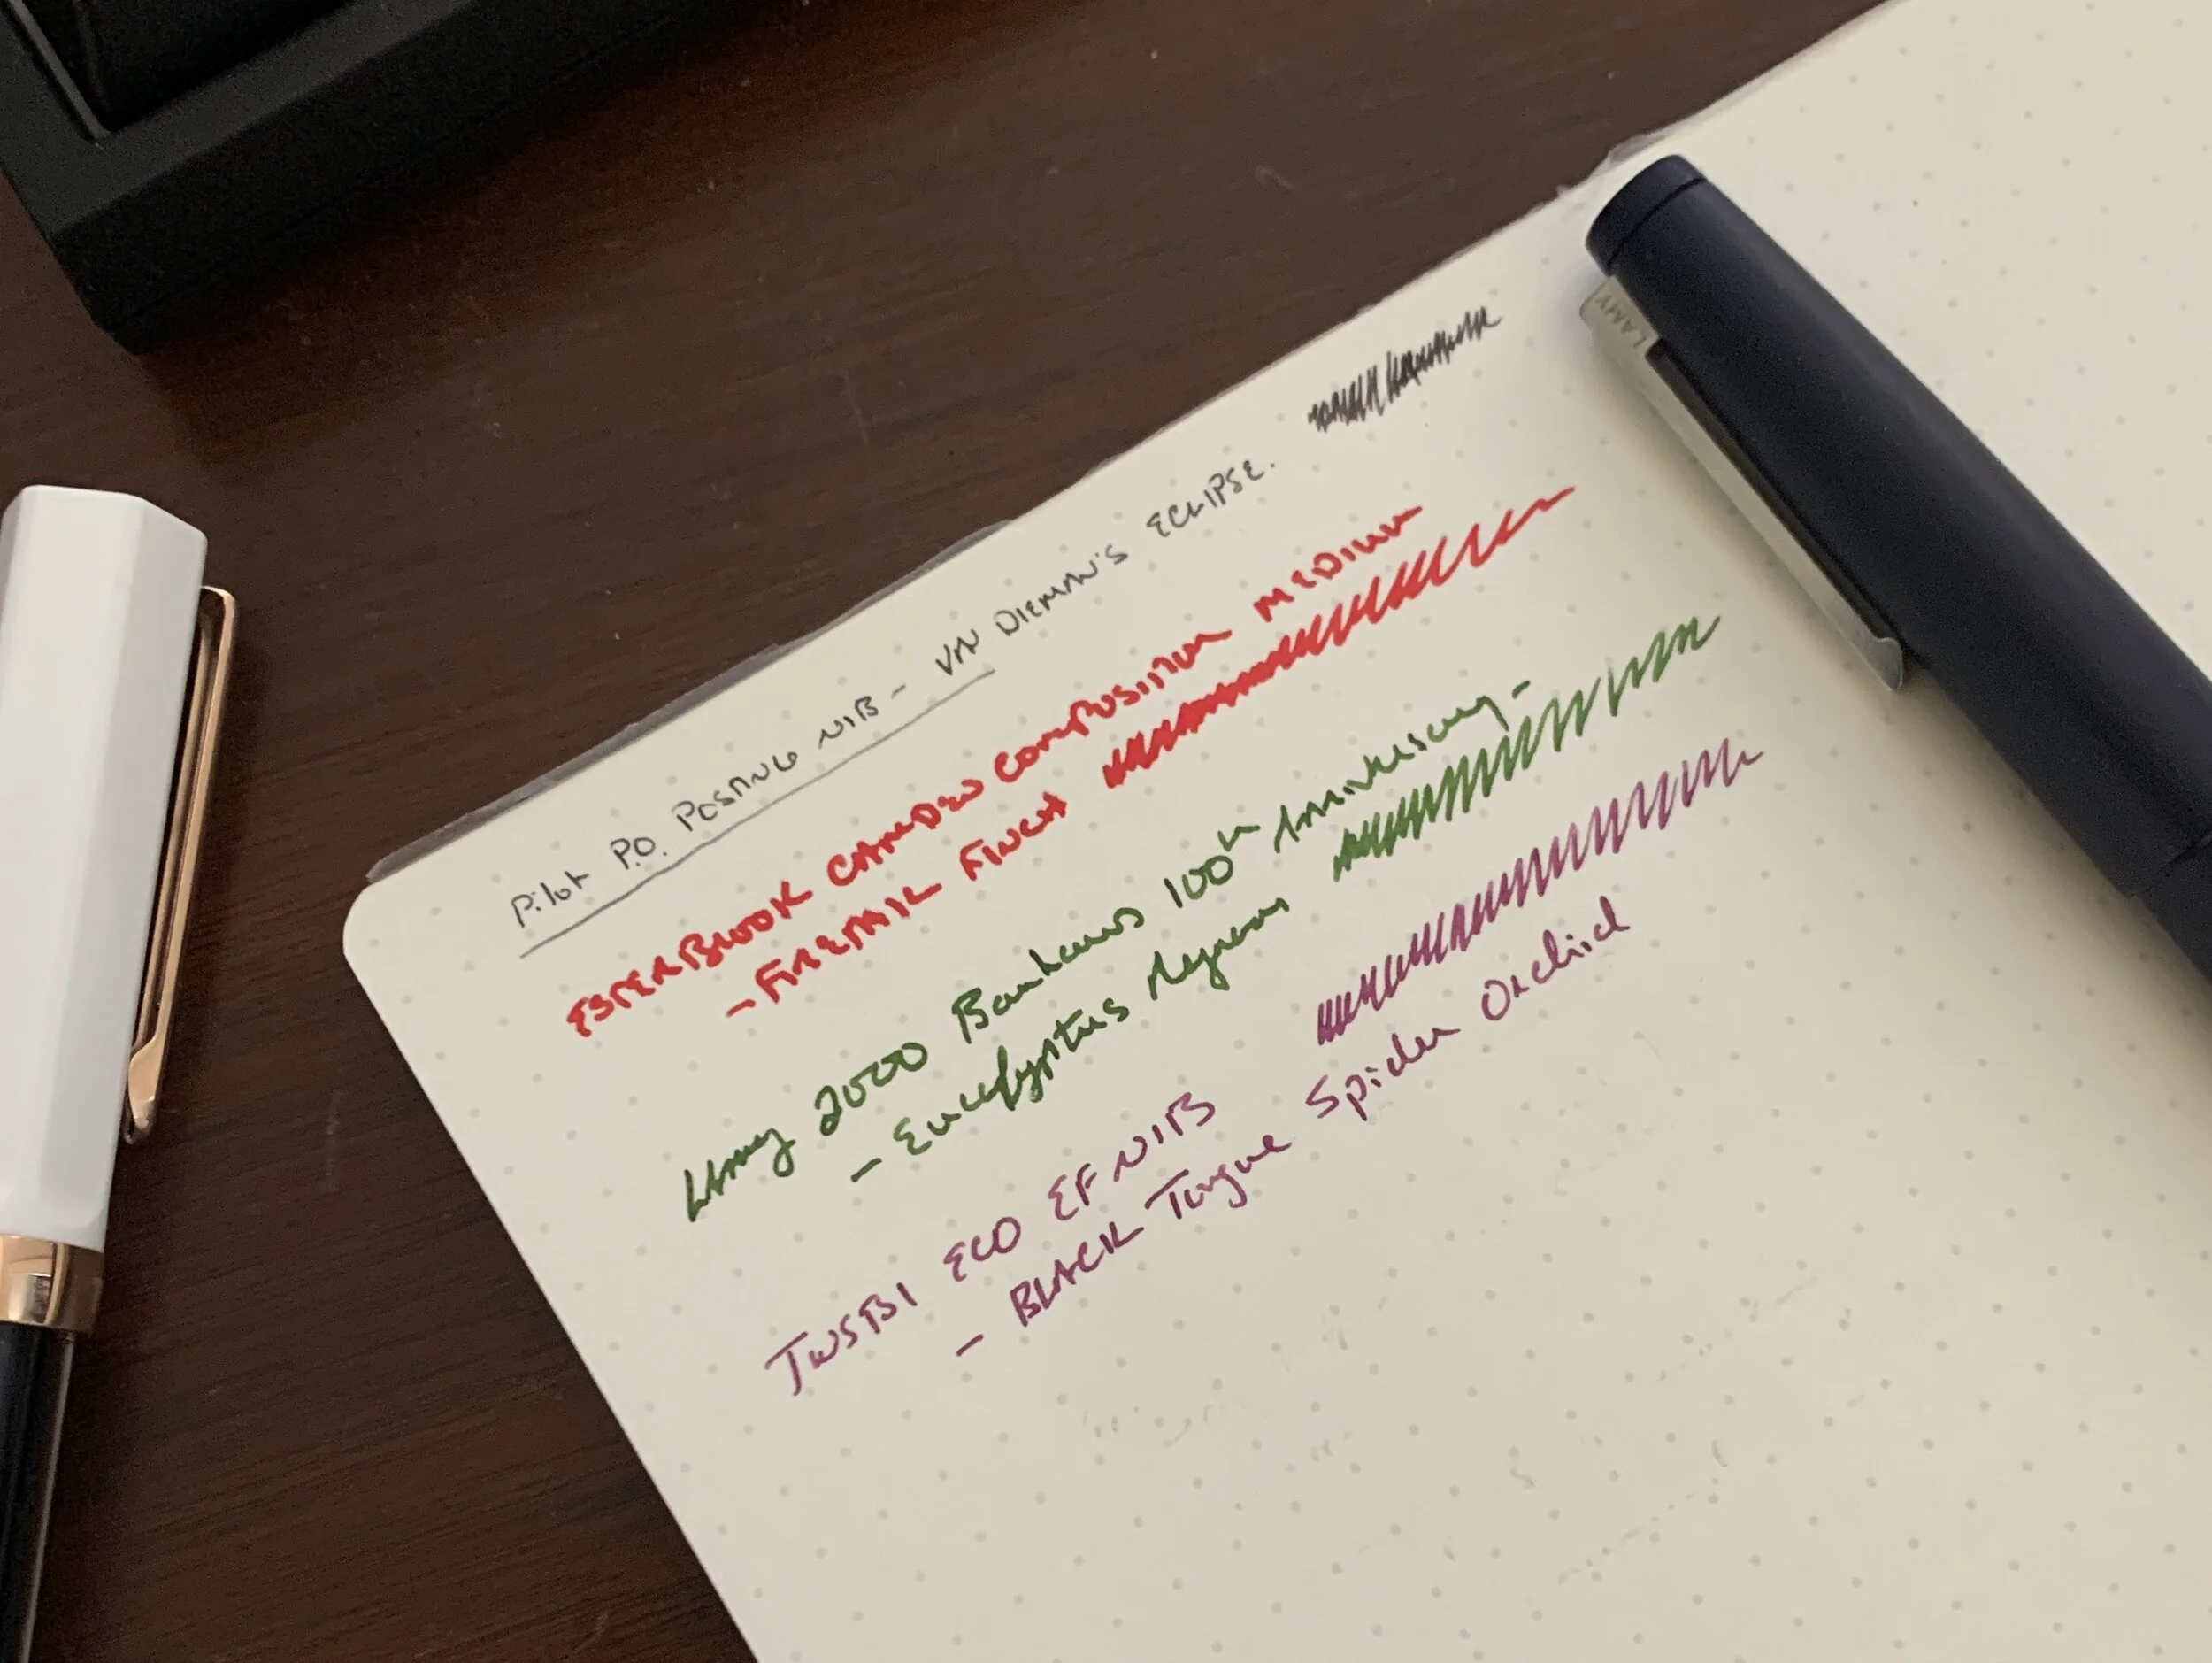 Pilot P.O. POSTING NIB - VAN DIEMAN'S ECLIPSE.
ESTERBROOK CAMDEN COMPOSITION MEDIUM
- FIRETAIL FINCH
Lamy 2000 Bauhaus 100th Anniversary -
- Eucalyptus Regnans
TWSBI ECO EF NIB
- BLACK Tongue Spider Orchid
LAMY